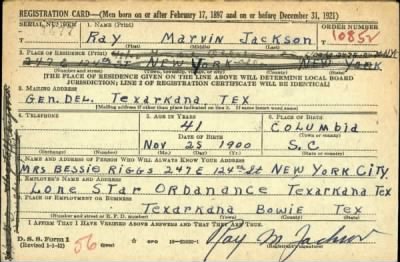 REGISTRATION CARD—(Men born on or after February 17, 1897 and on or before December 31, 1921)
SERIAL NUMBER 1. NAME (Print) ORDER NUMBER
Ray Marvin Jackson 10852
(First) (Middle) (Last)
2. PLACE OF RESIDENCE (Print)
NEW YORK NEW YORK
(Number and street) (Town, township, village, or city) (County) (State)
[THE PLACE OF RESIDENCE GIVEN ON THE LINE ABOVE WILL DETERMINE LOCAL BOARD
JURISDICTION; LINE 2 OF REGISTRATION CERTIFICATE WILL BE IDENTICAL]
3. MAILING ADDRESS
GEN. DEL. Texarkana Tex
[Mailing address if other than place indicated on line 2. If same insert word same]
4. TELEPHONE 5. AGE IN YEARS 6. PLACE OF BIRTH
41 COLUMBIA
DATE OF BIRTH (Town or county)
Nov 25 1900 S.C.
(Exchange) (Number) (Mo.) (Day) (Yr.) (State or country)
7. NAME AND ADDRESS OF PERSON WHO WILL ALWAYS KNOW YOUR ADDRESS
MRS BESSIE RIGGS 247 E 124th St NEW YORK CITY
8. EMPLOYER'S NAME AND ADDRESS
Lone Star Ordanance Texarkana Tex
9. PLACE OF EMPLOYMENT OR BUSINESS
Texarkana Bowie Tex
(Number and street or R. F. D. number) (Town) (County) (State)
I AFFIRM THAT I HAVE VERIFIED ABOVE ANSWERS AND THAT THEY ARE TRUE.
D. S. S. Form 1
(Revised 1-1-42) 56 Ray M Jackson